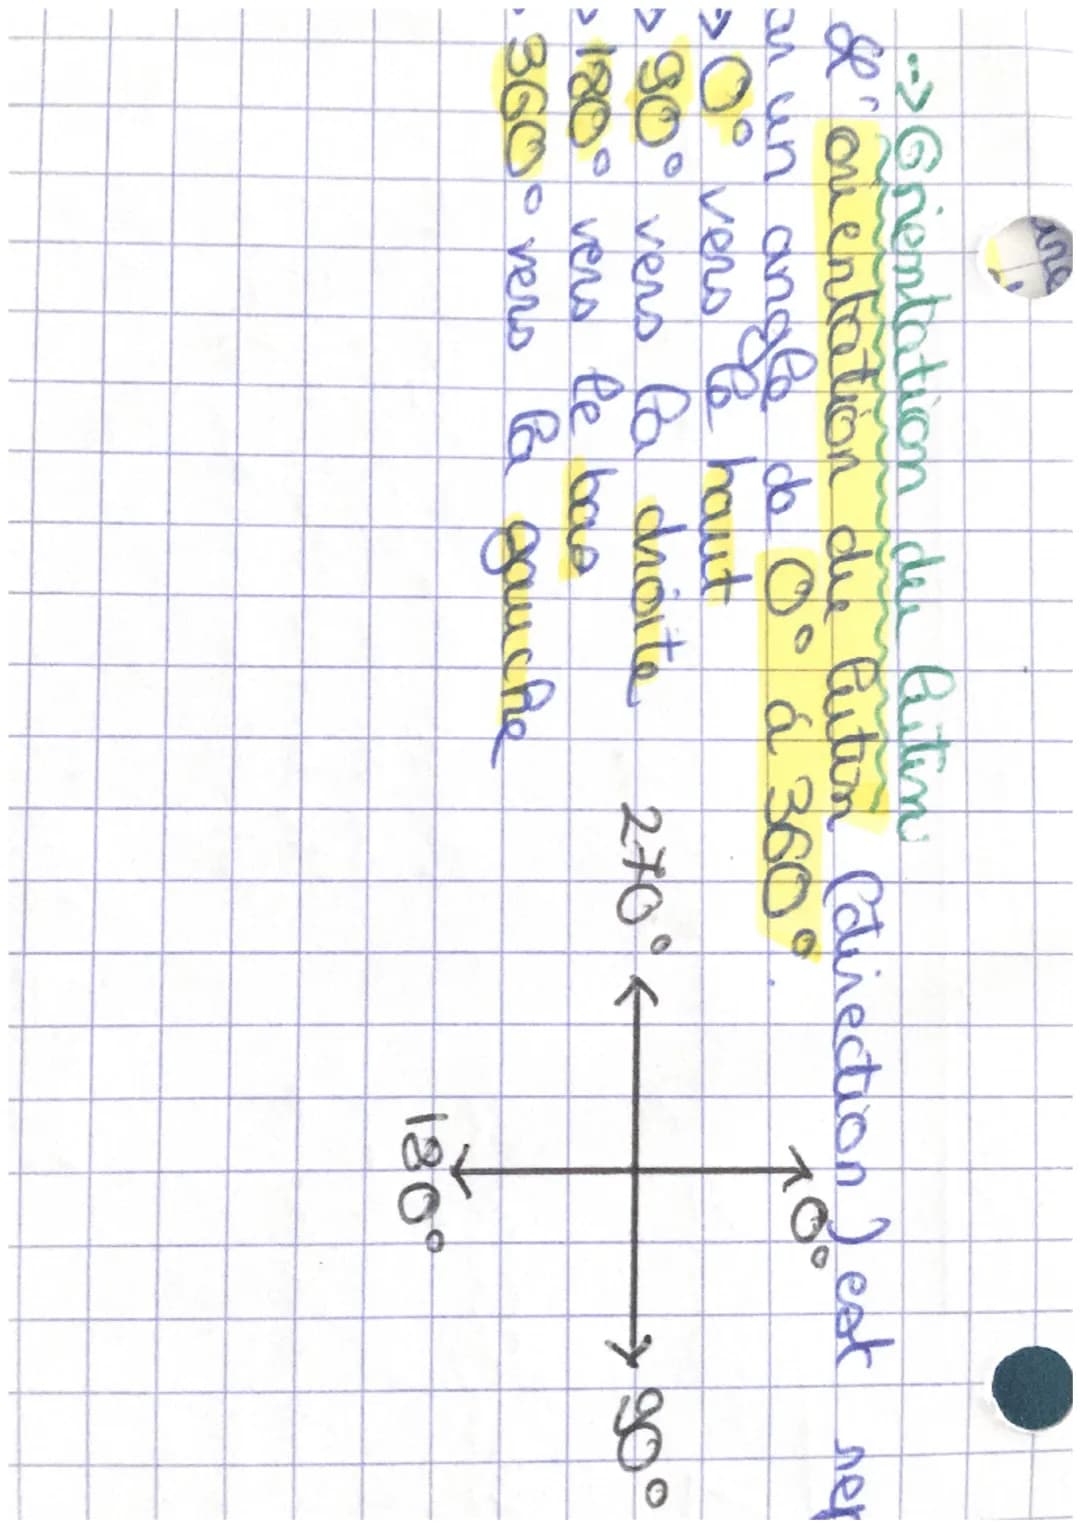 --> Orientation du lutin
L'orientation du lutin (direction) est
un angle de 0° à 360°.
> 0° vers le haut
> 90° vers la droite
> 180° vers le bas
360° vers la gauche
0°
270°
90°
180°